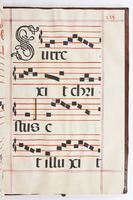 Surre
xi t chri
stus e
t illu xi t